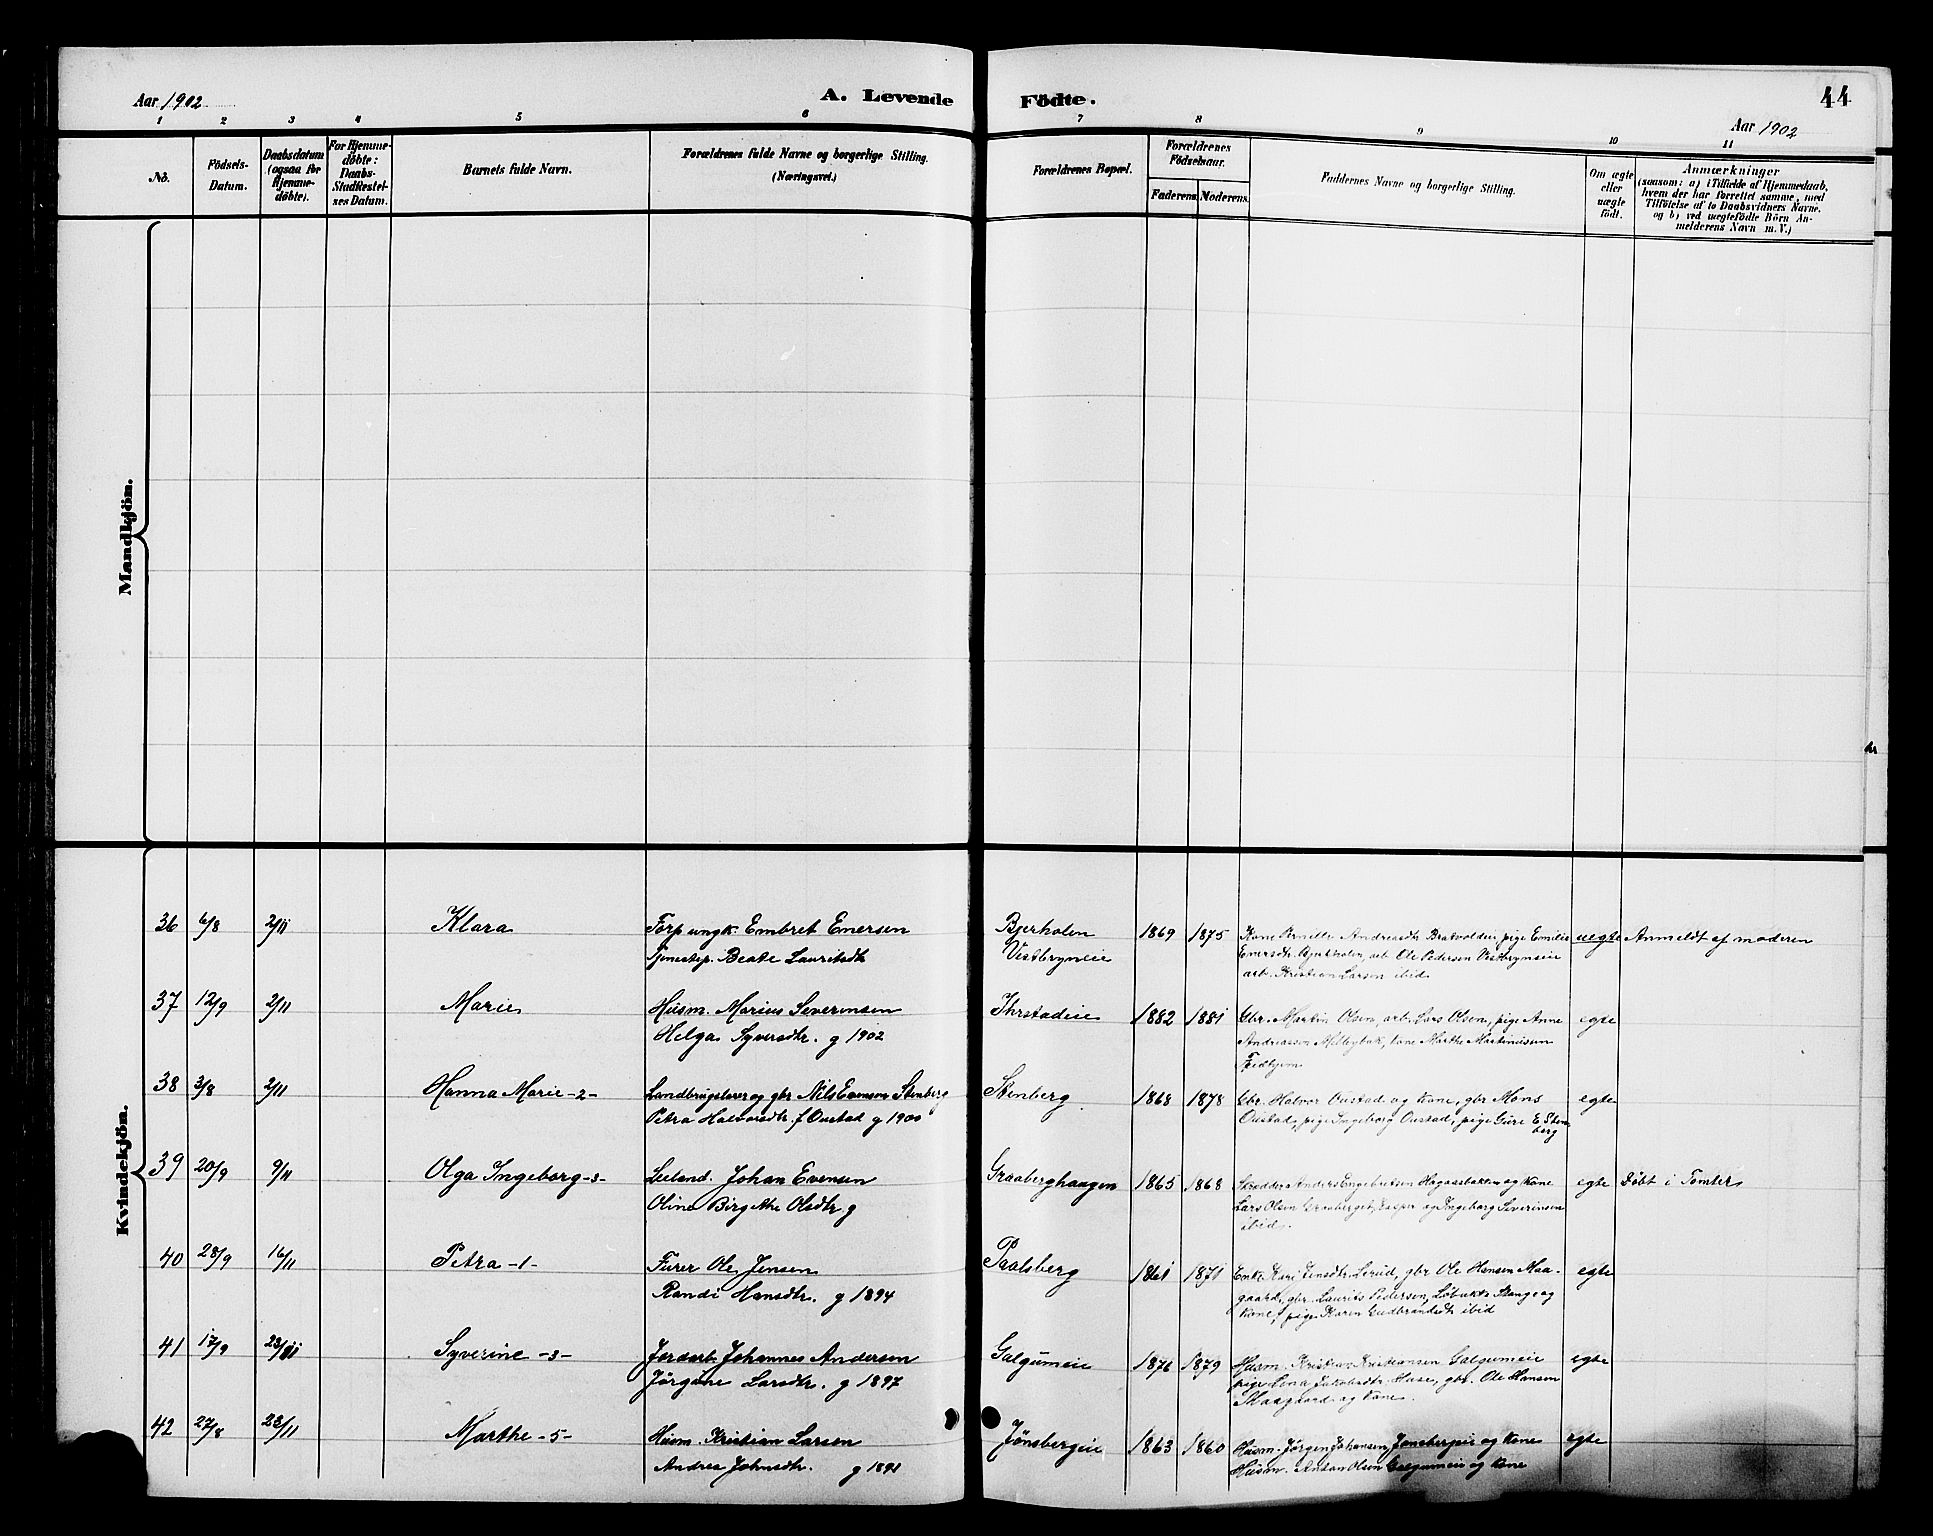 Aar 1902
A. Levende Födte.
44
Aar 1902
1 2 3 4 5 6 7 8 9 10 11
No.
Födsels-
Datum.
Daabsdatum
(ogsaa for
Hjemme-
døbte).
For Hjemme-
døbte:
Daabs-
Stadfæstel-
ses Datum.
Barnets fulde Navn.
Forældrenes fulde Navne og borgerlige Stilling.
(Næringsvei.)
Forældrenes Bopæl.
Forældrenes
Födselsaar.
Faderens. Moderens.
Faddernes Navne og borgerlige Stilling.
Om ægte
eller
uægte
födt.
Anmærkninger
(saasom: a) i Tilfælde af Hjemmedaab,
hvem der har forrettet samme, med
Tilföielse af to Daabsvidners Navne,
og b) ved uægtefödte Börn An-
melderens Navn m. V.)
Mandkjön.
Kvindekjön.
36 6/8 2/11 Klara
Forp ungk. Embret Enersen
Tjenestep. Beate Lauritsdtr
Bjerholen
Vestbryneie
1869 1875
Kone Pernille Andreasdtr Bratvolden, pige Emilie
Enersdtr. Bjerkholen, arb Ole Pedersen Vestbrynseie
arb. Kristian Larsen ibid
uegte Anmeldt af moderen
37 12/9 2/11 Marie
Husm. Marius Severinsen
Helga Syversdtr. g 1902
Ihrstadeie
1882 1881
Gbr. Martin Olsen, arb. Lars Olsen, pige Anne
Andreassen Melbybak, kone Marthe Martinussen
egte
38 3/8 2/11 Hanna Marie -2-
Landbrugslærer og gbr Nils Evensen Stenberg
Petra Halvorsdtr. f Oustad g 1900
Stenberg
1868 1878
Gbr. Halvor Oustad og kone, gbr Mons
Oustad, pige Ingeborg Oustad, pige Guri E. Sten
berg
egte
39 20/9 9/11 Olga Ingeborg -3-
Leiland. Johan Evensen
Oline Birgithe Olsdtr g
Graaberghaugen
1865 1868
Skrædder Anders Engebretsen Hagasebakken og kone
Lars Olsen Graaberget, Kasper og Ingeborg Severinsen
ibid.
egte Döbt i Tomter
40 28/9 16/11 Petra -1-
Furer Ole Jensen
Randi Hansdtr. g 1894
Paalsberg
1861 1871
Enke Kari Jensdtr. Lerud, gbr Ole Hansen Maa-
gaard, gbr. Laurits Pedersen, Löbukta Stange og
kone, pige Karin Gudbrandsdtr ibid
egte
41 17/9 23/11 Syverine -3-
Jordarb. Johannes Andersen
Jørgine Larsdtr. g 1897
Galgumeie
1876 1879
Husm. Kristian Kristiansen Galgumeie
pige Lina Jakobsdtr Huse, gbr. Ole Hansen
Maagaard og kone.
egte
42 27/8 23/11 Marthe -5-
Husm. Kristian Larsen
Andrea Johnsdtr. g 1891
Jønsbergeie
1863 1860
Husm. Jørgen Johansen Jønsbergeie og kone
Husm. Anton Olsen Galgumeie og kone
egte